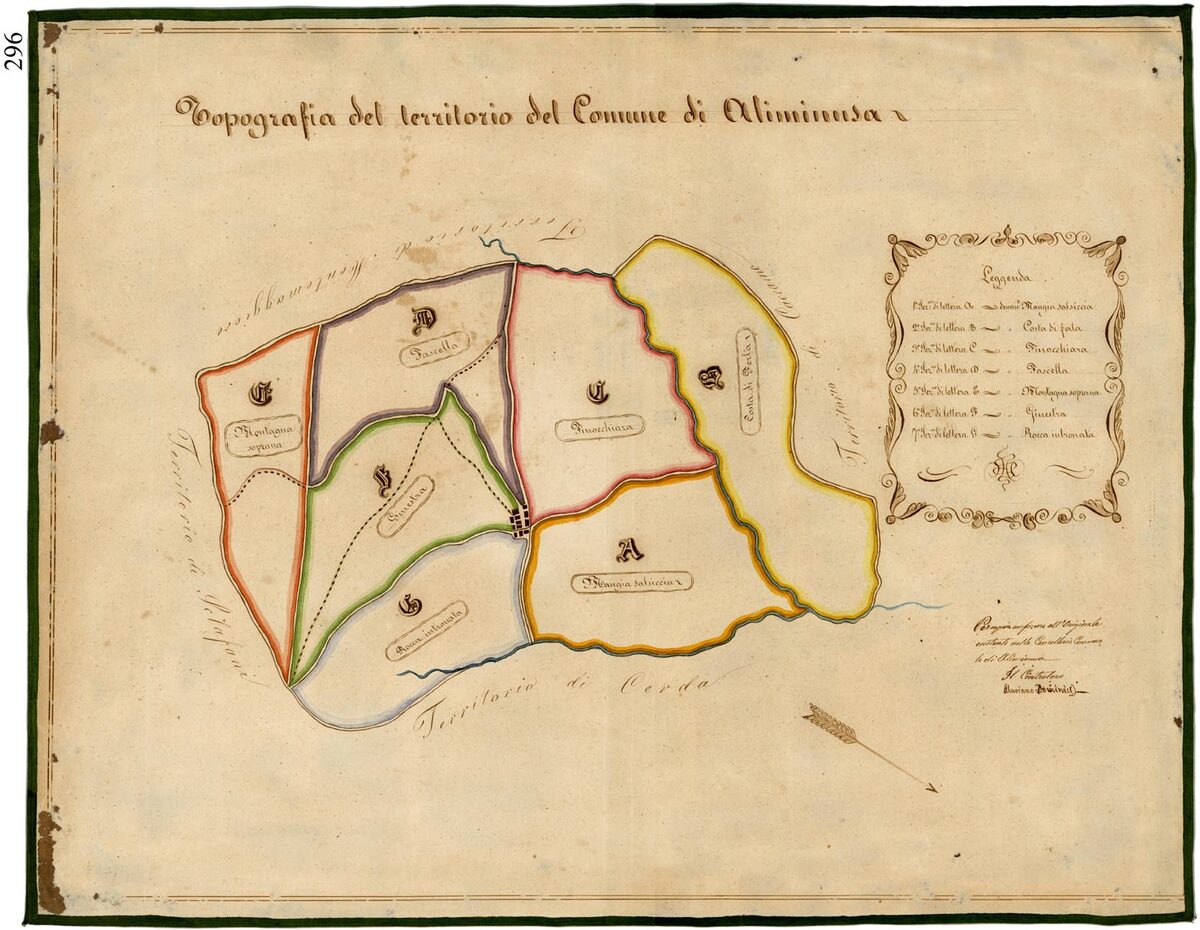 296
Topografia del territorio del Comune di Aliminusa
Territorio di Montemaggiore
Territorio di Caccamo
Territorio di Sciafani
Territorio di Cerda
D
Fascella
E
Montagna
soprana
C
Finocchiara
B
Costa di Ferla
F
Ginestra
A
Mangia salsiccia
G
Rocca intronata
Leggenda
1ª Ser.ne di lettera A denom.ta Mangia salsiccia
2ª Ser.ne di lettera B " Costa di ferla
3ª Ser.ne di lettera C " Finocchiara
4ª Ser.ne di lettera D " Fascella
5ª Ser.ne di lettera E " Montagna soprana
6ª Ser.ne di lettera F " Ginestra
7ª Ser.ne di lettera G " Rocca intronata
Per copia conforme all'Originale
esistente nella Cancelleria Comuna-
le di Aliminusa
Il Controloro
Mariano